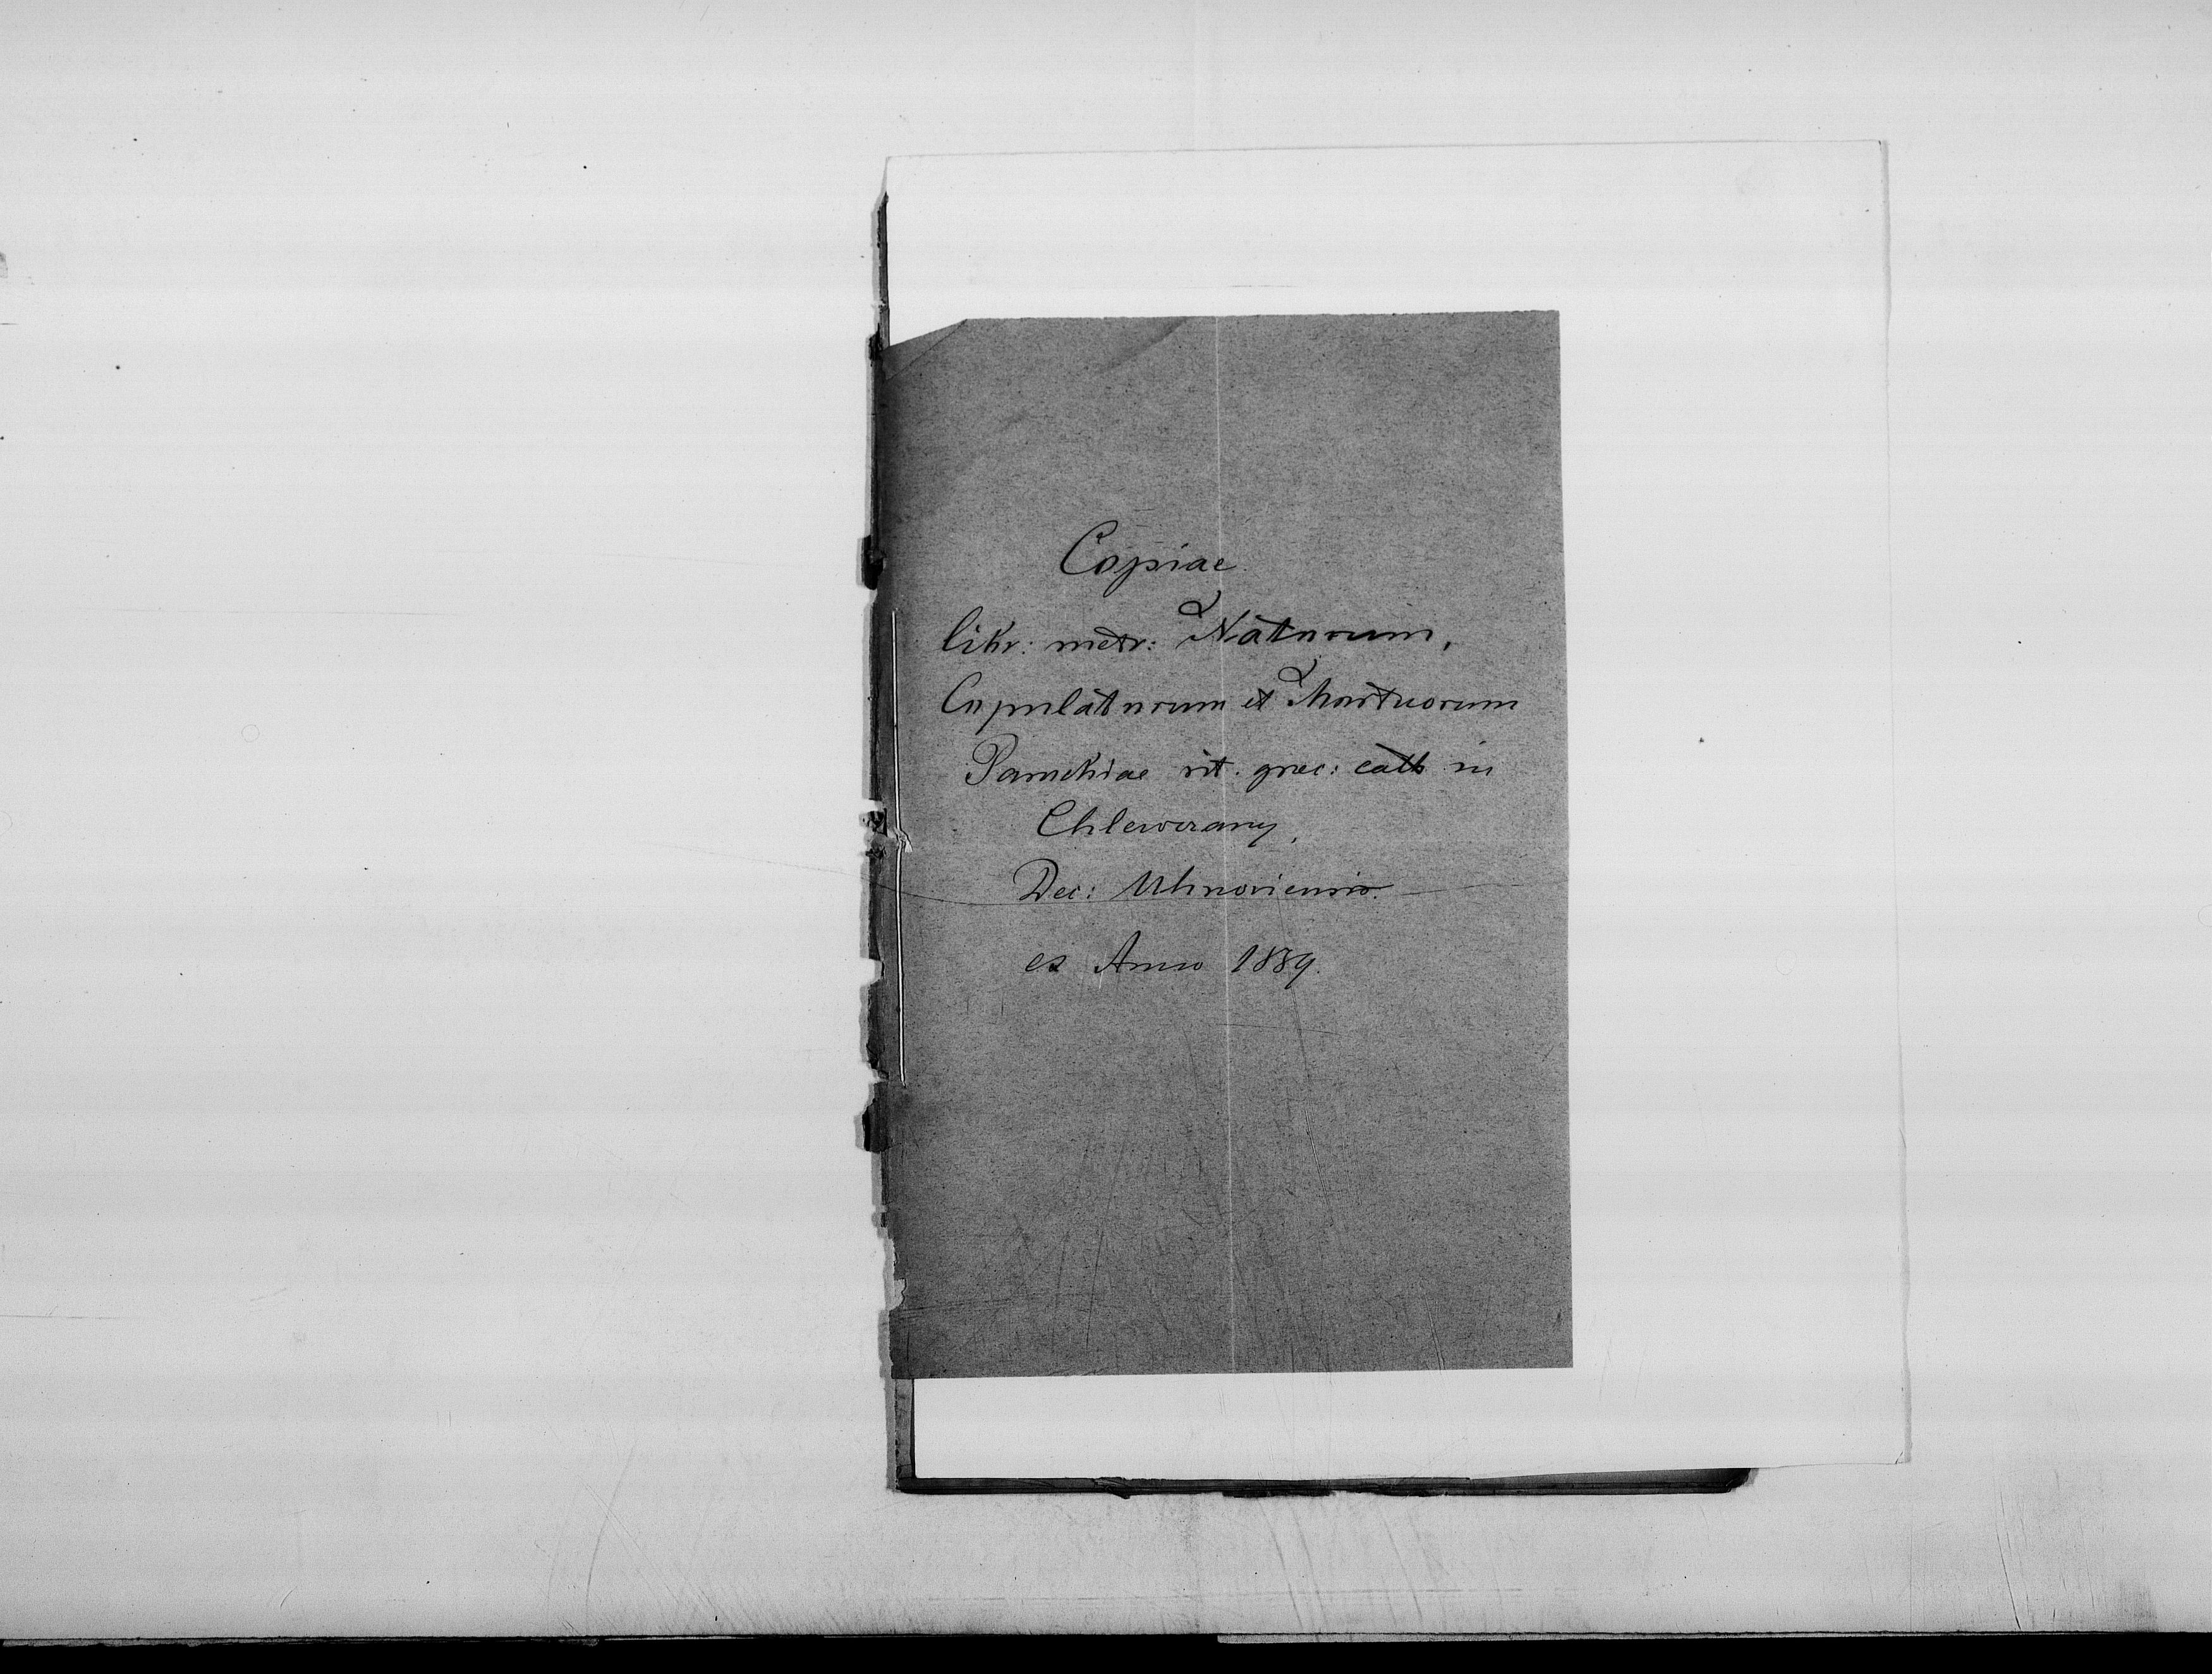 Copiae
libr: metr: Natorum,
Copulatorum et Mortuorum
Parochiae rit. graec: cath in
Chlewczany,
Dec: Uhnoviensis.
ex Anno 1889.